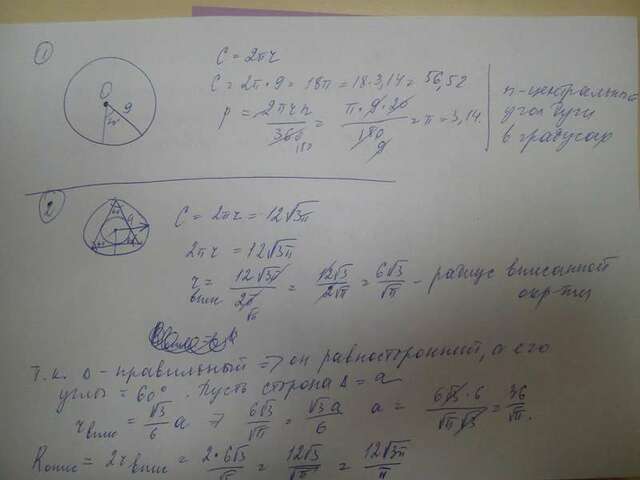 1
C = 2πr
C = 2π·9 = 18π = 18·3,14 = 56,52
O
9
20°
p = 2πrn/360 = π·9·20/180 = π = 3,14.
180
9
n-центральный
угол дуги
в градусах
2
C = 2πr = 12√3π
2πr = 12√3π
r впис = 12√3π/2π = 12√3/2√π = 6√3/√π - радиус вписанной
√π
окр-ти
Т.к. Δ - правильный => он равносторонний, а его
углы = 60°. Пусть сторона Δ = a
r впис = √3/6 a => 6√3/√π = √3a/6 a = 6√3·6/√π√3 = 36/√π.
R опис = 2r впис = 2·6√3/√π = 12√3/√π = 12√3π/π